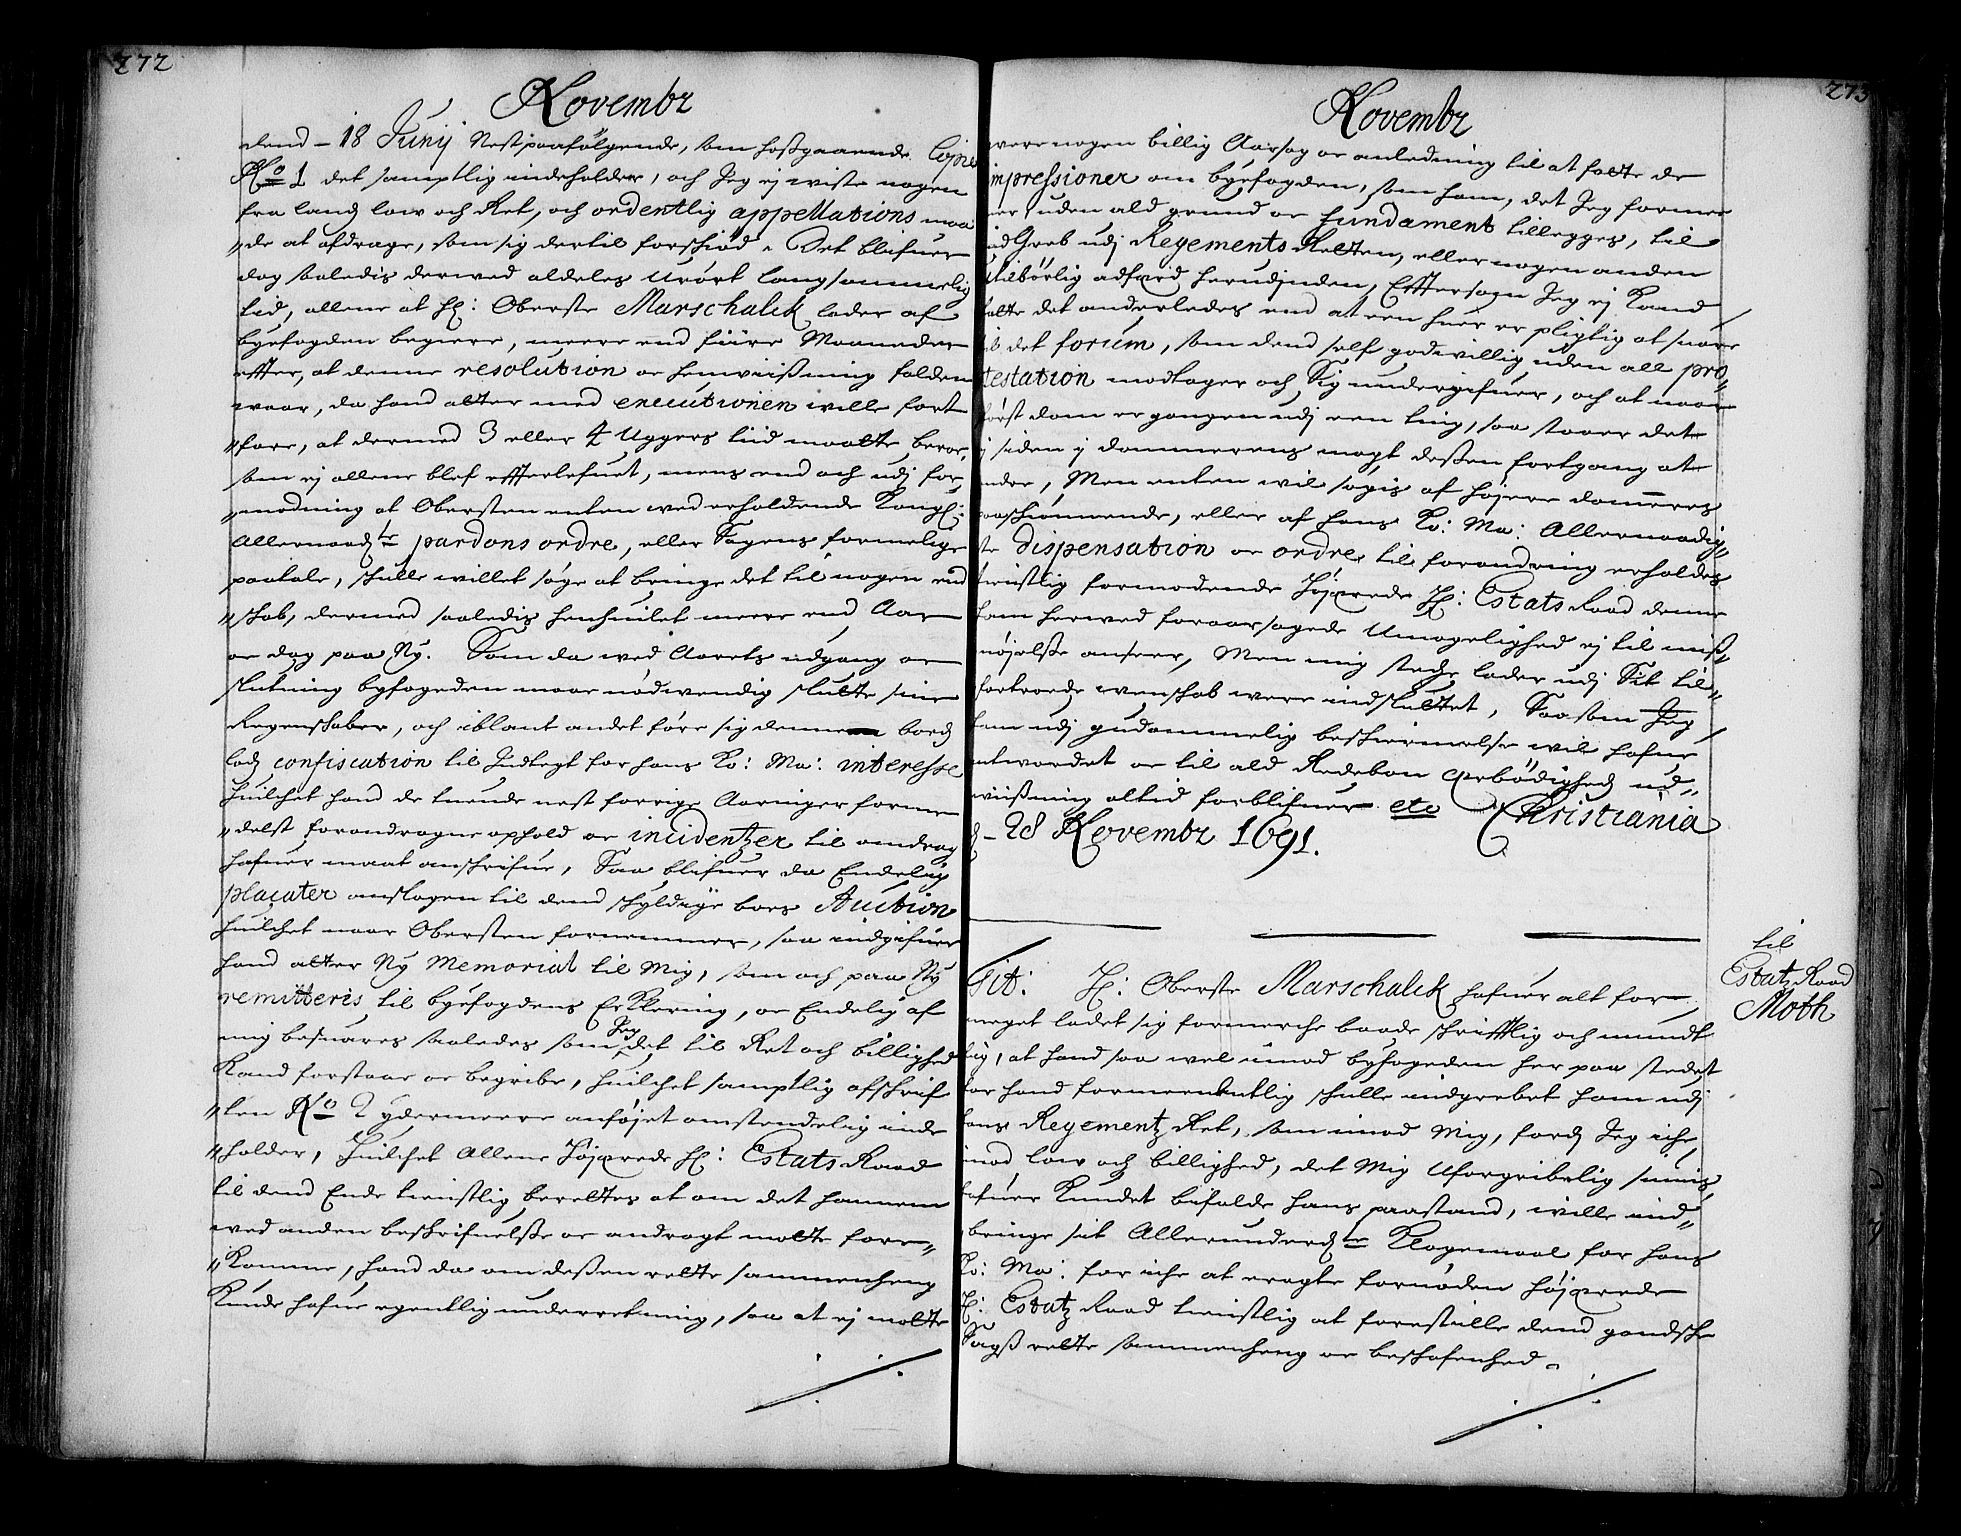 272
Novembr
dend - 18 Junij Nestpaafølgende, som hosgaaende Copie
No 1 det samptlig indeholder, och Jeg ej wiste nogen
fra landz low och Ret, och ordentlig appellations maa
"de at afdrage, som sig dertil forschiød. Det blifuer
dog saaledis derwed aldeles Urørt langsommelig
tid, allene at Hr: Oberste Marschalck lader af
byefogden begiere, meere end fiire Maaneder
efter, at denne resolution oc henwiisning falden
waar, da hand atter med execütionen wille fort
"fare, at dermed 3 eller 4 Uggers tiid maatte beroe,
som ej allene blef effterlefuet, mens end och udj for
"modning at Obersten enten wed erholdende Kongl:
Allernaadste pardons ordre, eller Sagens formelige
paatale, schulle willet søge at bringe det til nogen end
"schab, dermed saaledis henhuilet meere end Aar
oc dag paa Ny. Som da wed Aarets udgang oc
slutning byfogeden maae nødwendig slutte sine
Regenskaber, och iblant andet føre sig denne bordz
lodz confiscation til Indtegt for hans Ko: Ma: interesse
huilchet hand de tuende nest forrige Aaringer forme
"delst forandragne ophold oc incidentzer til andrag
hafuer maat anschrifue, Saa blifuer da Endelig
placater anslagen til dend schyldige boes Auction
huilchet naar Obersten fornemmer, saa indgifuer
hand atter Ny Memorial til Mig, som och paa Ny
remitteris til byefogdens Erklering, oc Endelig af
mig besuares saaledes som Jeg det til Ret och billighed
Kand forstaae oc begribe, huilchet samptlig afschrif
"ten No 2 ydermeere anføjet omstendelig inde
"holder, Huilchet Allene Højærede Hr: Estats Raad
til dend Ende tienistlig berettes at om det hannem
wed anden beskrifuelsse oc andragt motte fore"
"Komme, hand da om dessen rette sammenheng
Kunde hafue egentlig underretning, saa at ej motte
273
Novembr
were nogen billig Aarsag oc anledning til at fatte de
impressioner om byefogden, som ham, det Jeg forme
ner, uden ald grund oc fundament tillegges, til
ind Greb udj Regements Retten, eller nogen anden
Utilbørlig adferd herudjnden, Efftersom Jeg ej Kand
fatte det anderledes end at een huer er pligtig at suare
til det forum, som dend self godwillig uden all pro"
testation modtager och Sig undergifuer, och at naar
først dom er gangen udj een ting, saa staaer det
ej siden i dommerens magt dessen fortgang at
endre, Men enten wil søgis af højere dommeres
paaschiønnende, eller af hans Ko: Ma: Allernaadig"
ste dispensation oc ordre til forandring erholdes
tienistlig formodende Højærede Hr: Estats Raad denne
ham herwed foraarsagede Umagelighed ej til miss"
nøjelsse anseer, Men mig stedze lader udj Sit til"
fortroede wenschab were indsluttet, Saasom Jeg
ham udj gudommelig beschiermelse wil hafue
antwordet oc til ald Redebon ærbødigheds ud"
wiisning altid forblifuer etc Christiania
d - 28 Novembr 1691.
til
Estatz Raad
Moth
Tit: Hr: Oberste Marschalck hafuer alt for
meget ladet sig formerche baade schrifftlig och mundt
lig, at hand saa wel imod byfogeden her paa stedet
for hand formeenentlig schulle indgrebet ham udj
hans Regementz Ret, som imod Mig, fordj Jeg iche
imod low och billighed, det Mig Uforgribelig siunis,
hafuer Kundet bifalde hans paastand, wille ind"
bringe sit Allerunderdte Klagemaal for hans
Ko: Ma: for iche at eragte fornøden Højærede
Hr: Estatz Raad tienistlig at forestille dend gandsche
Sags rette sammenheng oc beschafenhed.